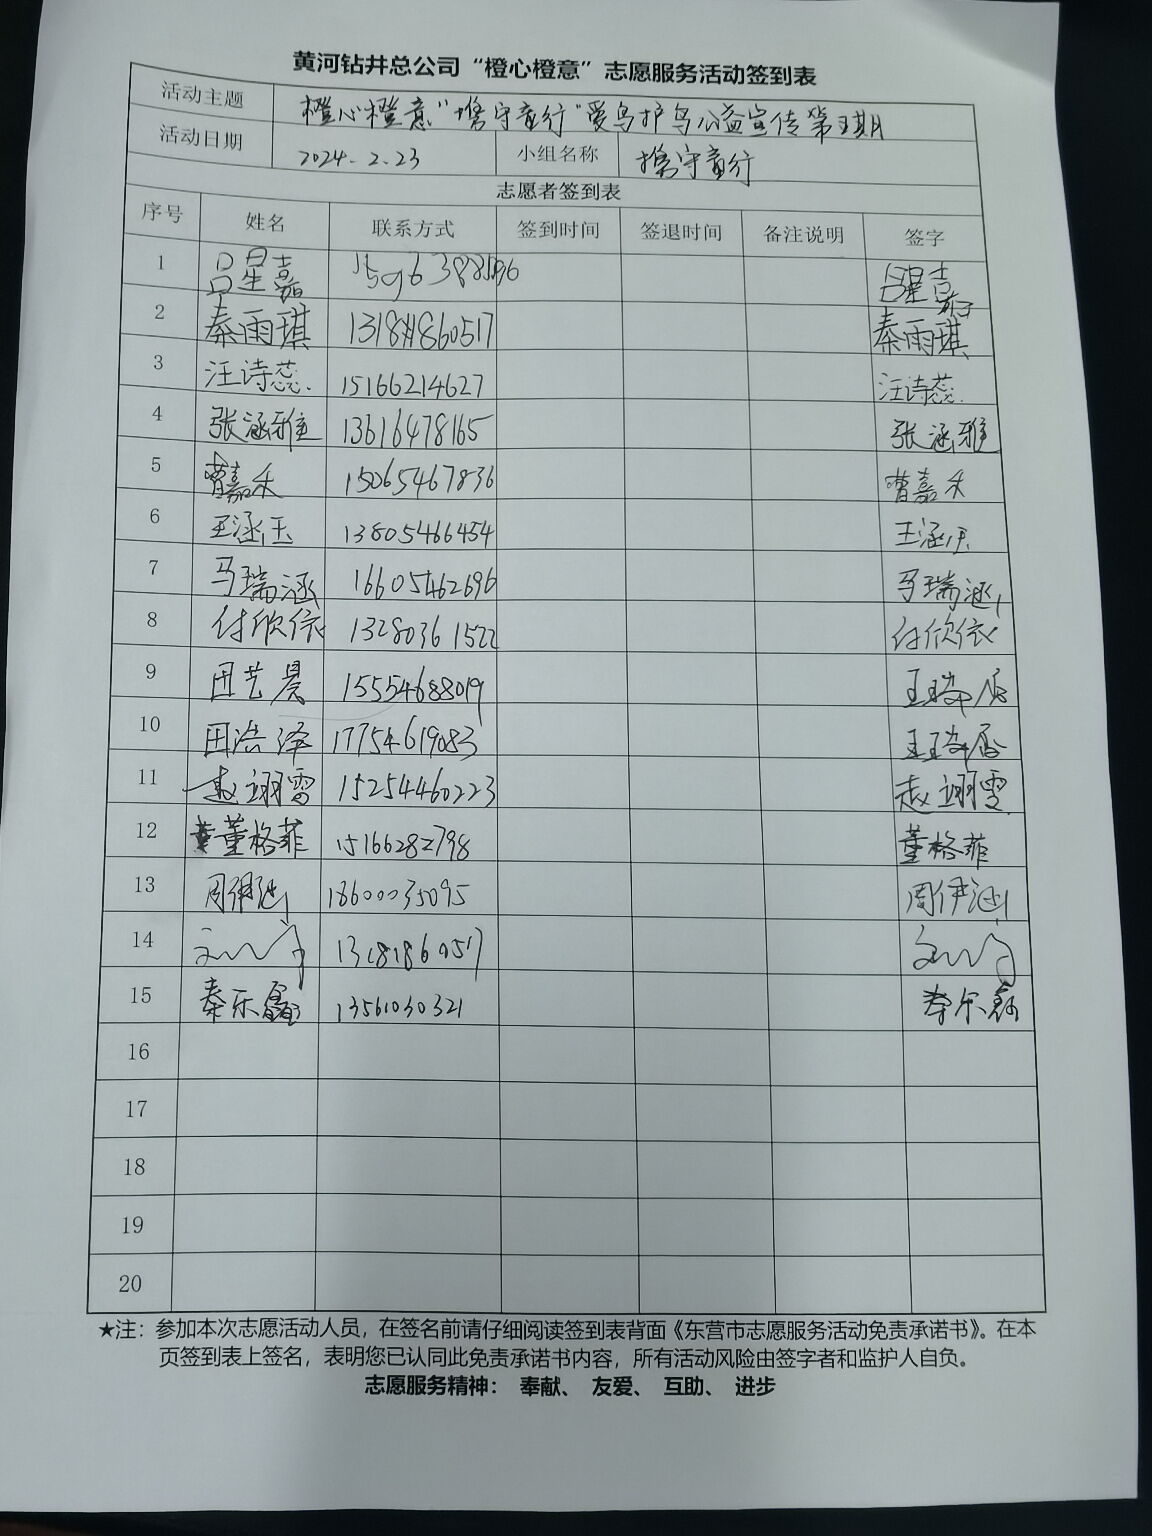 黄河钻井总公司“橙心橙意”志愿服务活动签到表
活动主题 橙心橙意“携守童行”爱鸟护鸟公益宣传第五期
活动日期 2024.2.23 小组名称 携守童行
志愿者签到表
序号 姓名 联系方式 签到时间 签退时间 备注说明 签字
1 吕星嘉 吕星嘉
2 秦雨琪 秦雨琪
3 汪诗蕊 15166214627 汪诗蕊
4 张涵雅 13616478165 张涵雅
5 曹嘉禾 15065467836 曹嘉禾
6 王涵玉 13805466454 王涵玉
7 马瑞涵 16605462696 马瑞涵
8 付欣依 13280361522 付欣依
9 田艺晨 15554688019
10 田浩泽 17754619083
11 赵翊雪 15254460223 赵翊雪
12 董格菲 15166282798 董格菲
13 周伊涵 18600035095 周伊涵
14 13181860517
15 秦乐 13561030321
16
17
18
19
20
★注：参加本次志愿活动人员，在签名前请仔细阅读签到表背面《东营市志愿服务活动免责承诺书》。在本
页签到表上签名，表明您已认同此免责承诺书内容，所有活动风险由签字者和监护人自负。
志愿服务精神： 奉献、 友爱、 互助、 进步